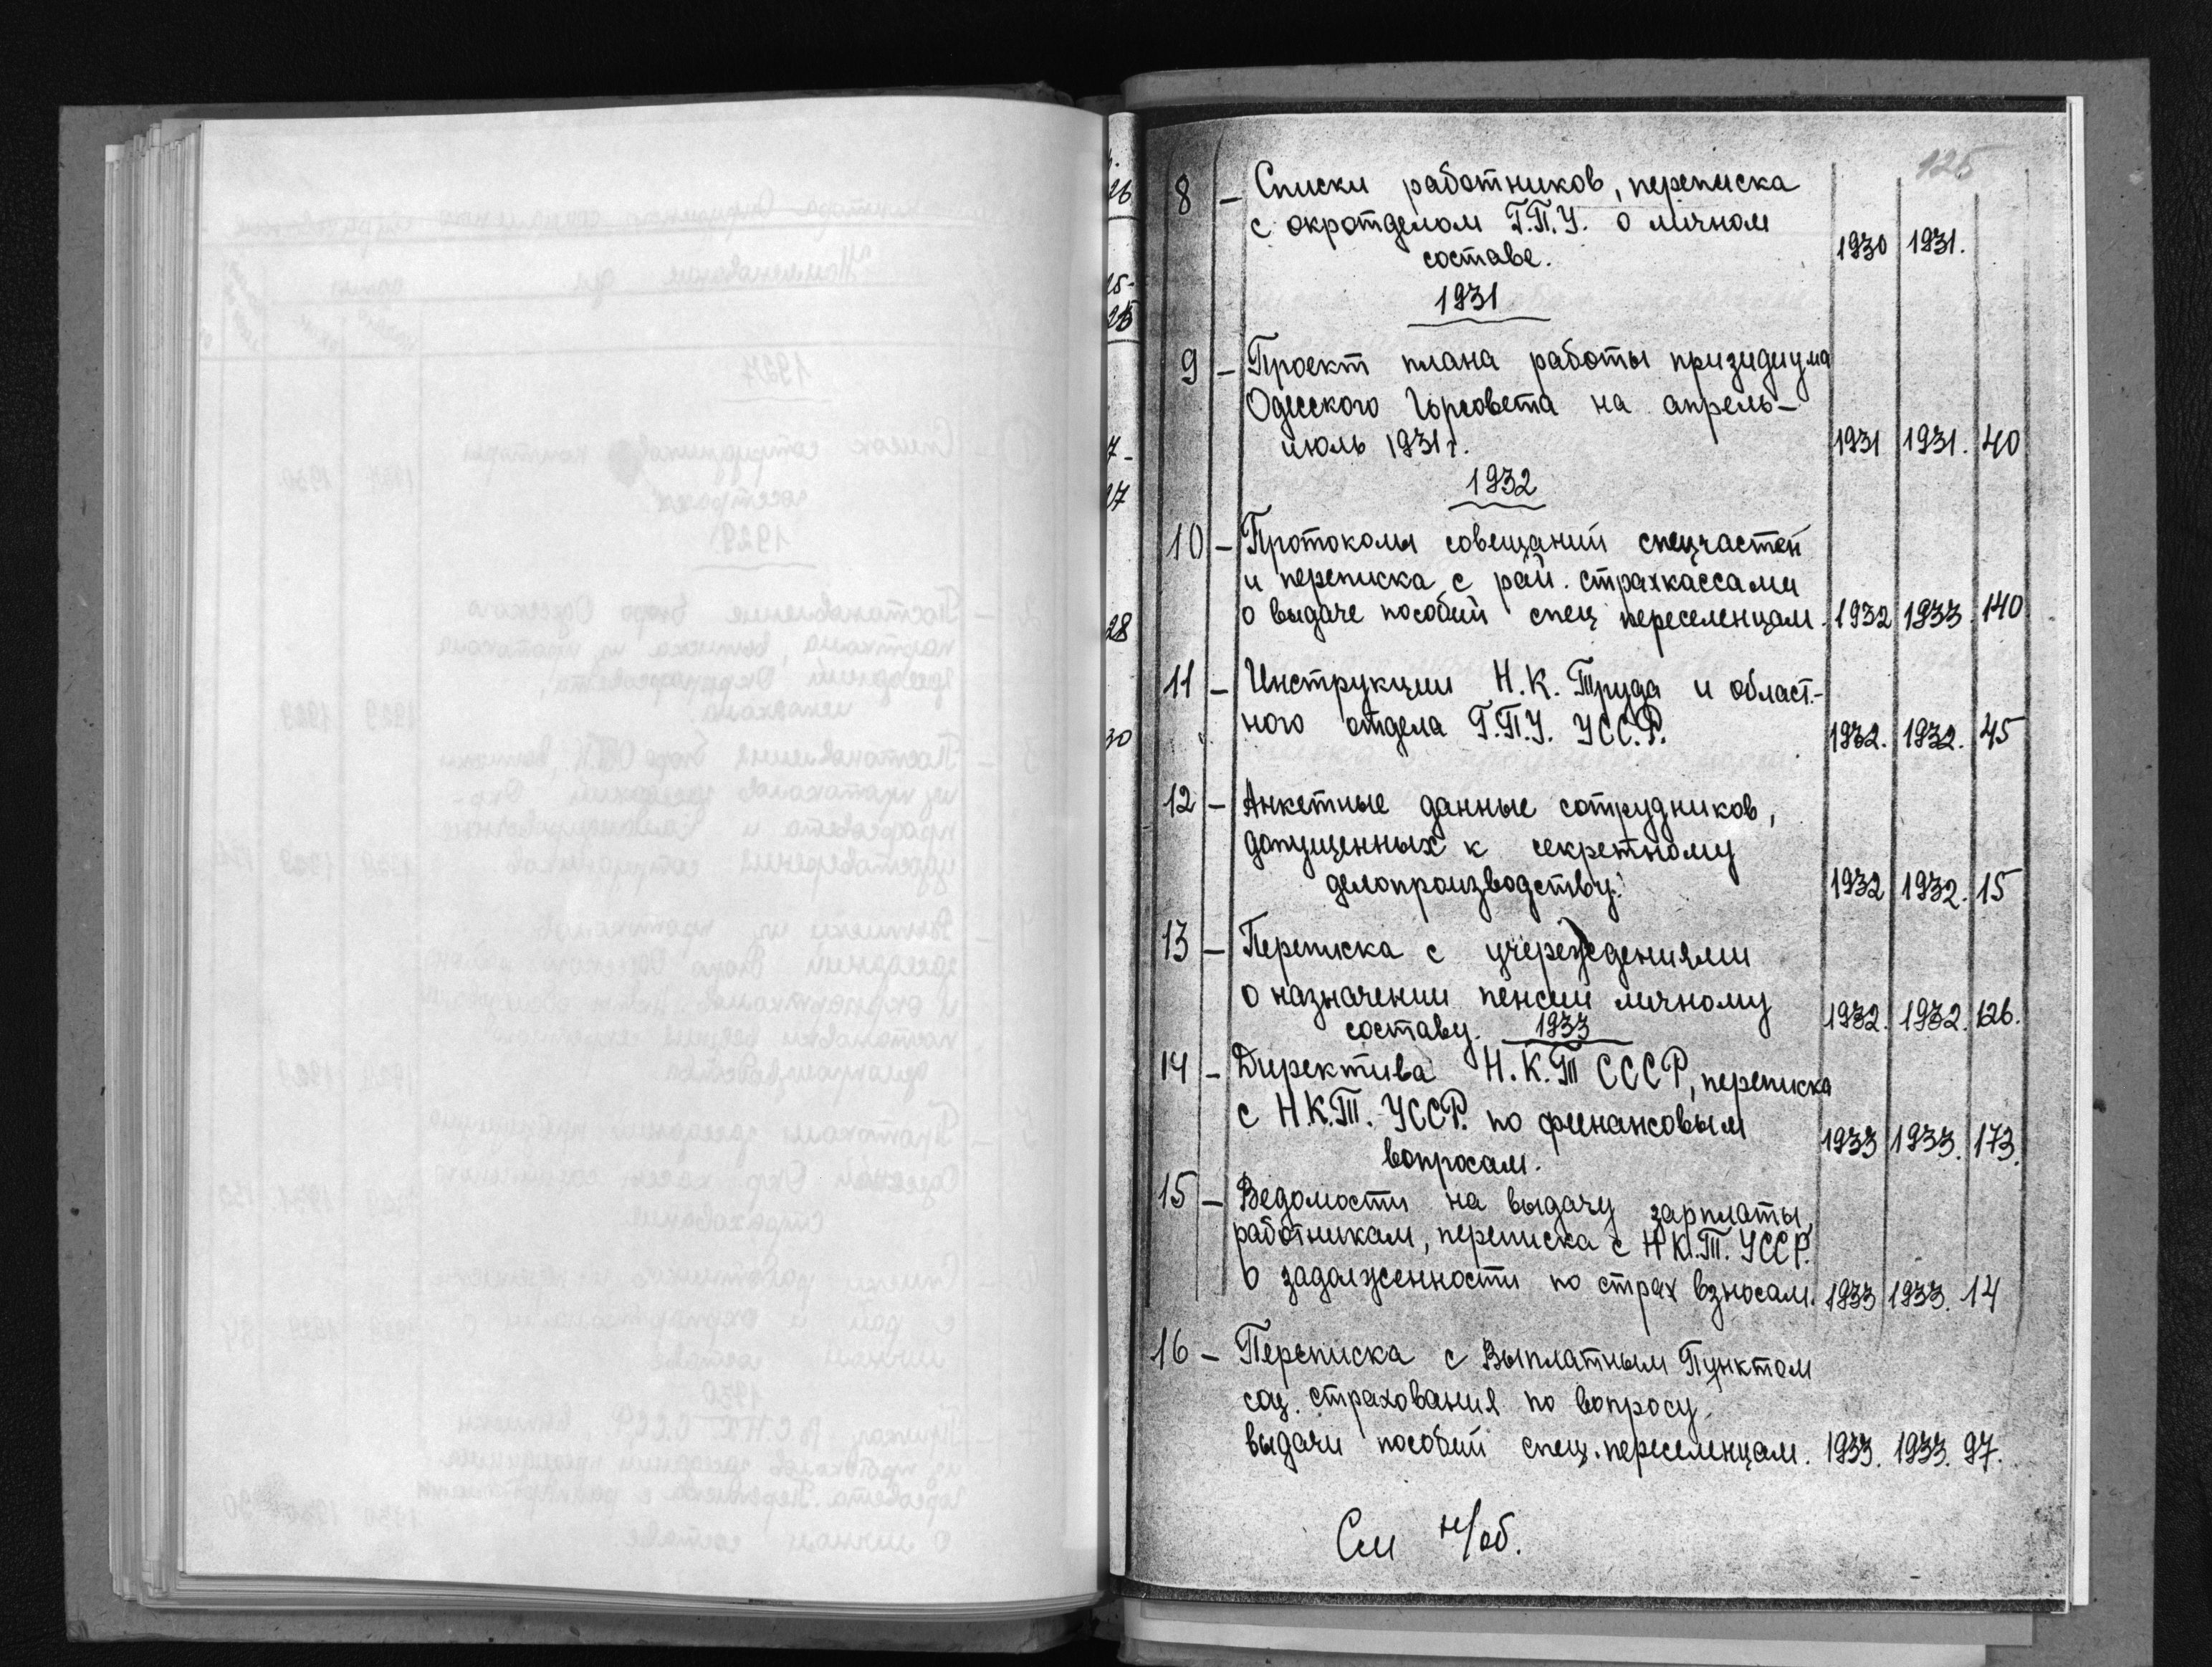 125
8 – Списки работников, переписка
с окротделом Г.П.У. о личном
составе. 1930 1931.
1931
9 – Проект плана работы призидиума
Одесского Горсовета на апрель–
июль 1931 г. 1931 1931. 40
1932
10 – Протоколы совещаний спецчастей
и переписка с рай. страхкассами
о выдаче пособий спец переселенцам. 1932 1933. 140
11 – Инструкции Н.К. Труда и област-
ного отдела Г.П.У. УССР. 1932. 1932. 45
12 – Анкетные данные сотрудников,
допущенных к секретному
делопроизводству. 1932 1932. 15
13 – Переписка с учереждениями
о назначении пенсий личному
составу. 1932. 1932. 126.
1933
14 – Директива Н.К.Т СССР, переписка
с Н.К.Т. УССР. по финансовым
вопросам. 1933 1933. 173.
15 – Ведомости на выдачу зарплаты,
работникам, переписка с Н.К.Т. УССР.
о задолженности по страх взносам. 1933 1933. 14
16 – Переписка с Выплатным Пунктом
соц. страхования по вопросу
выдачи пособий спец. переселенцам. 1933. 1933. 97.
См н/об.